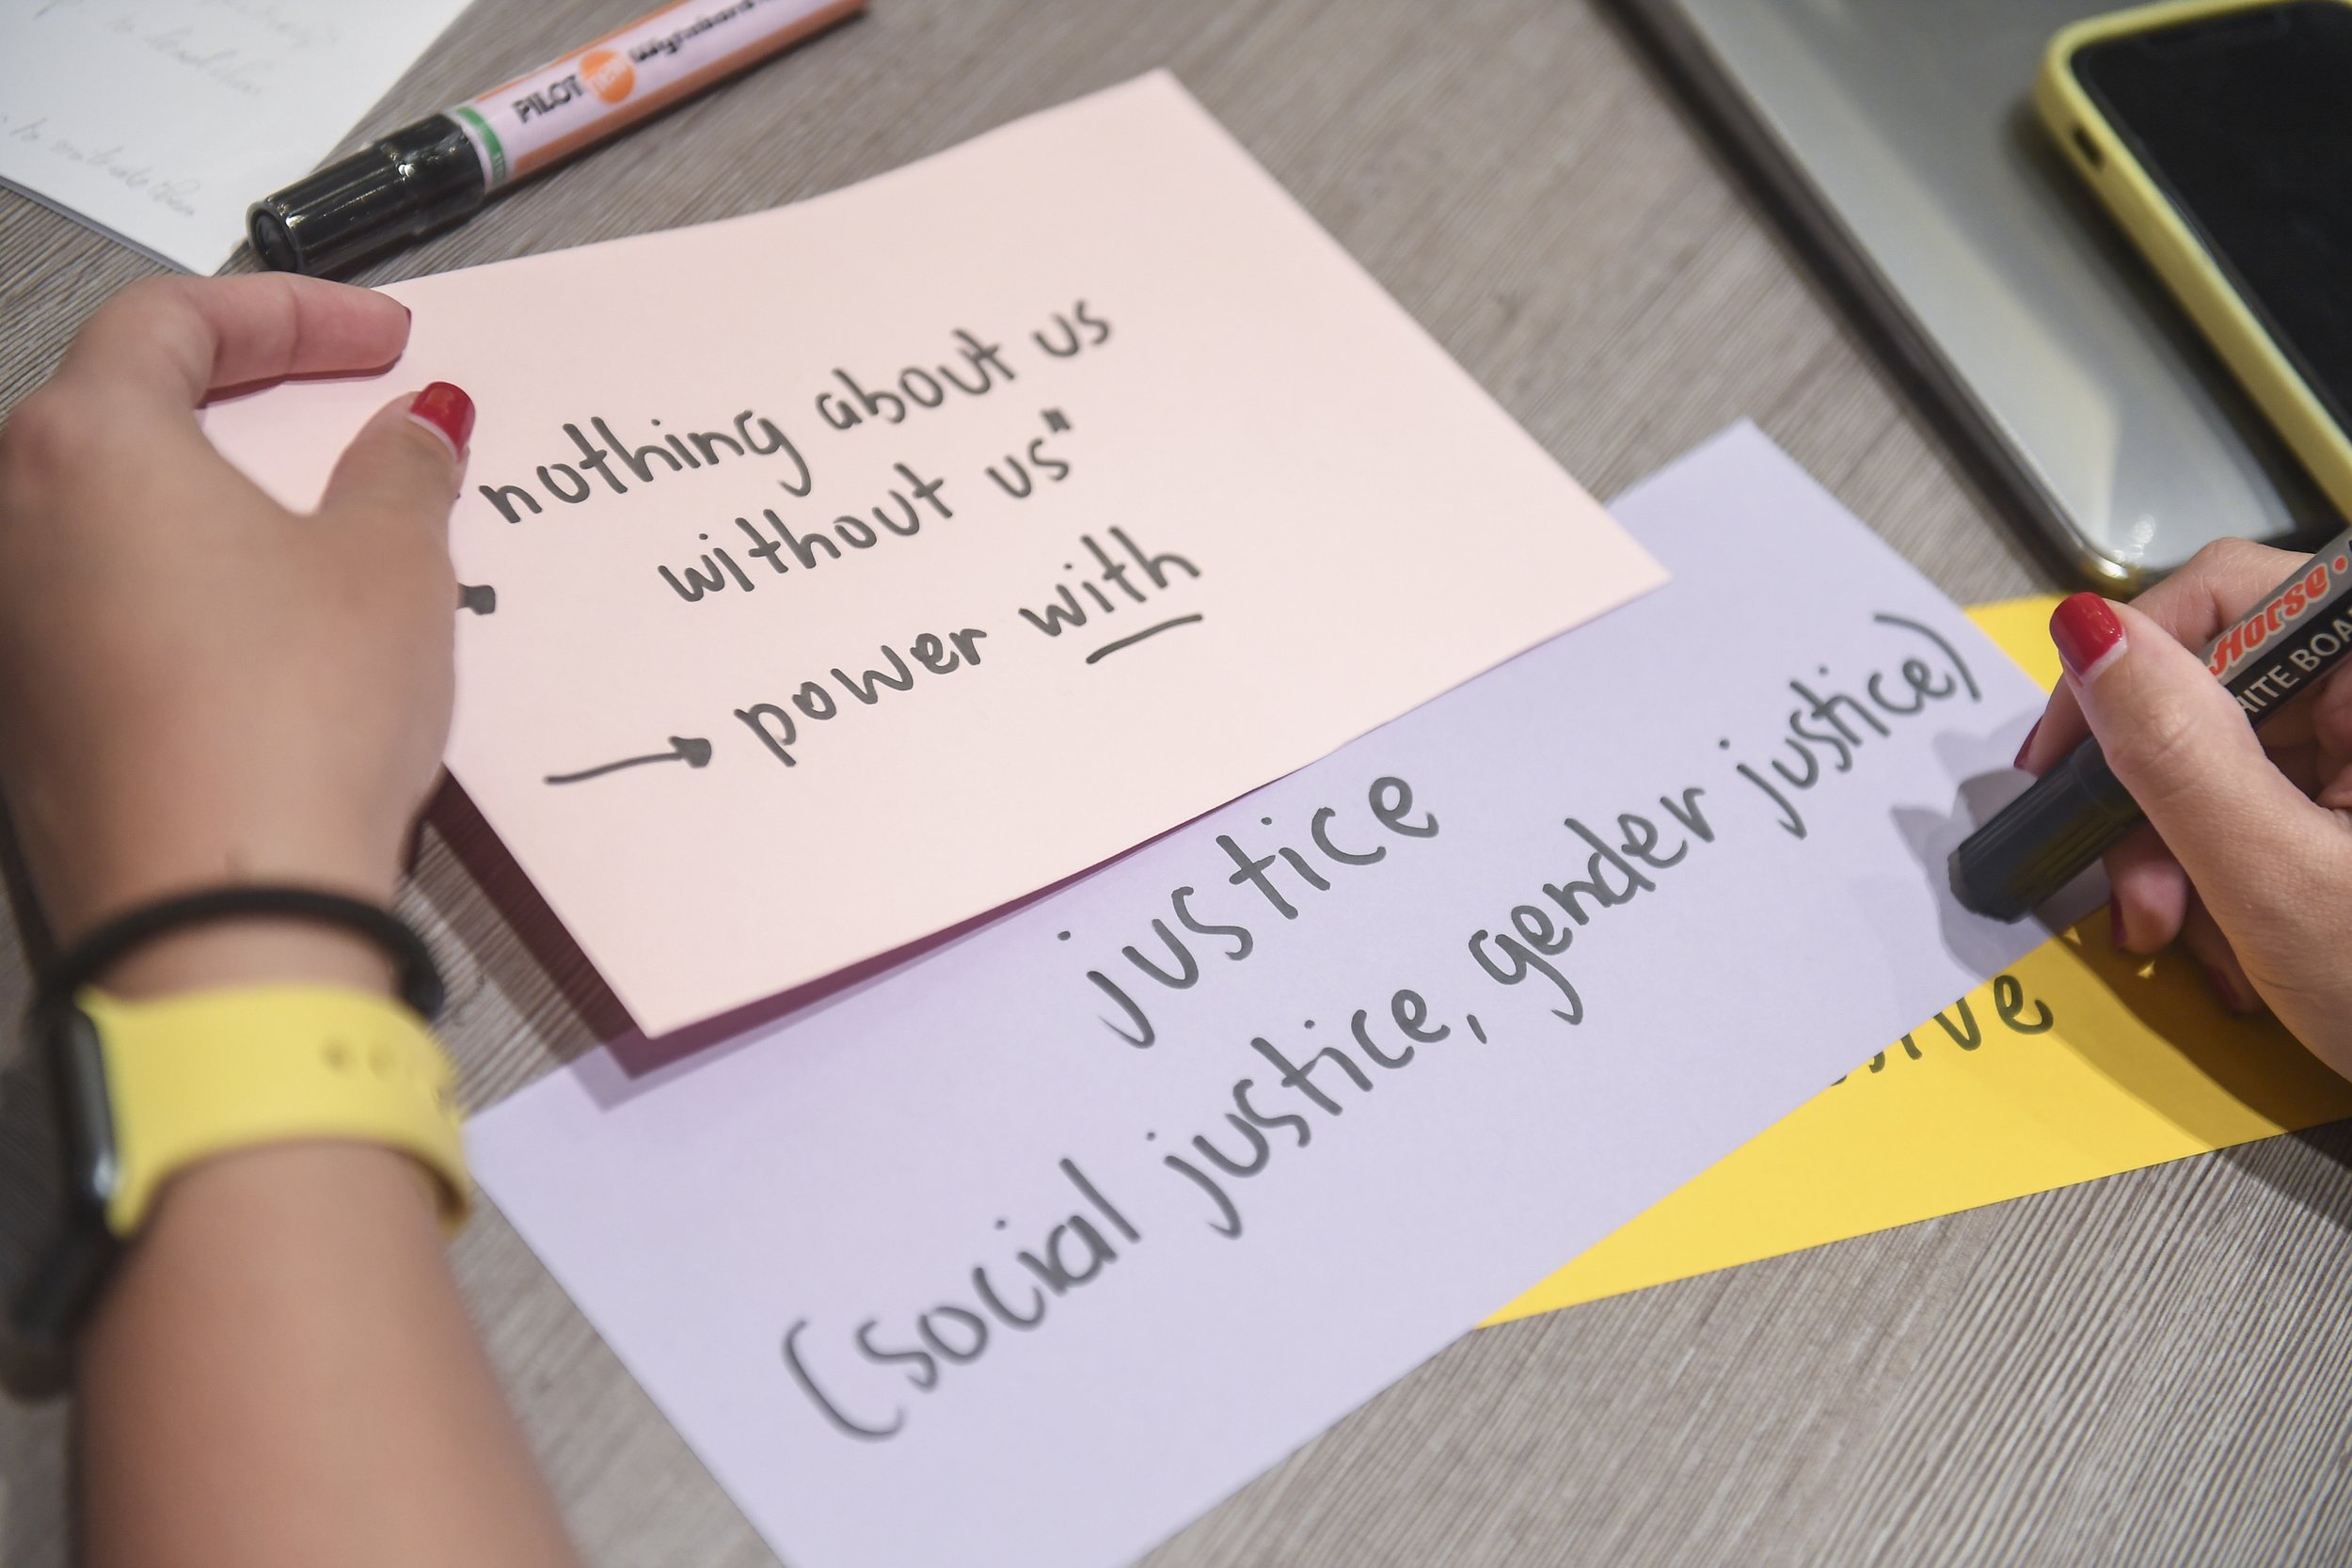 PILOT
new
nothing about us
without us"
power with
justice
(social justice, gender justice)
Horse